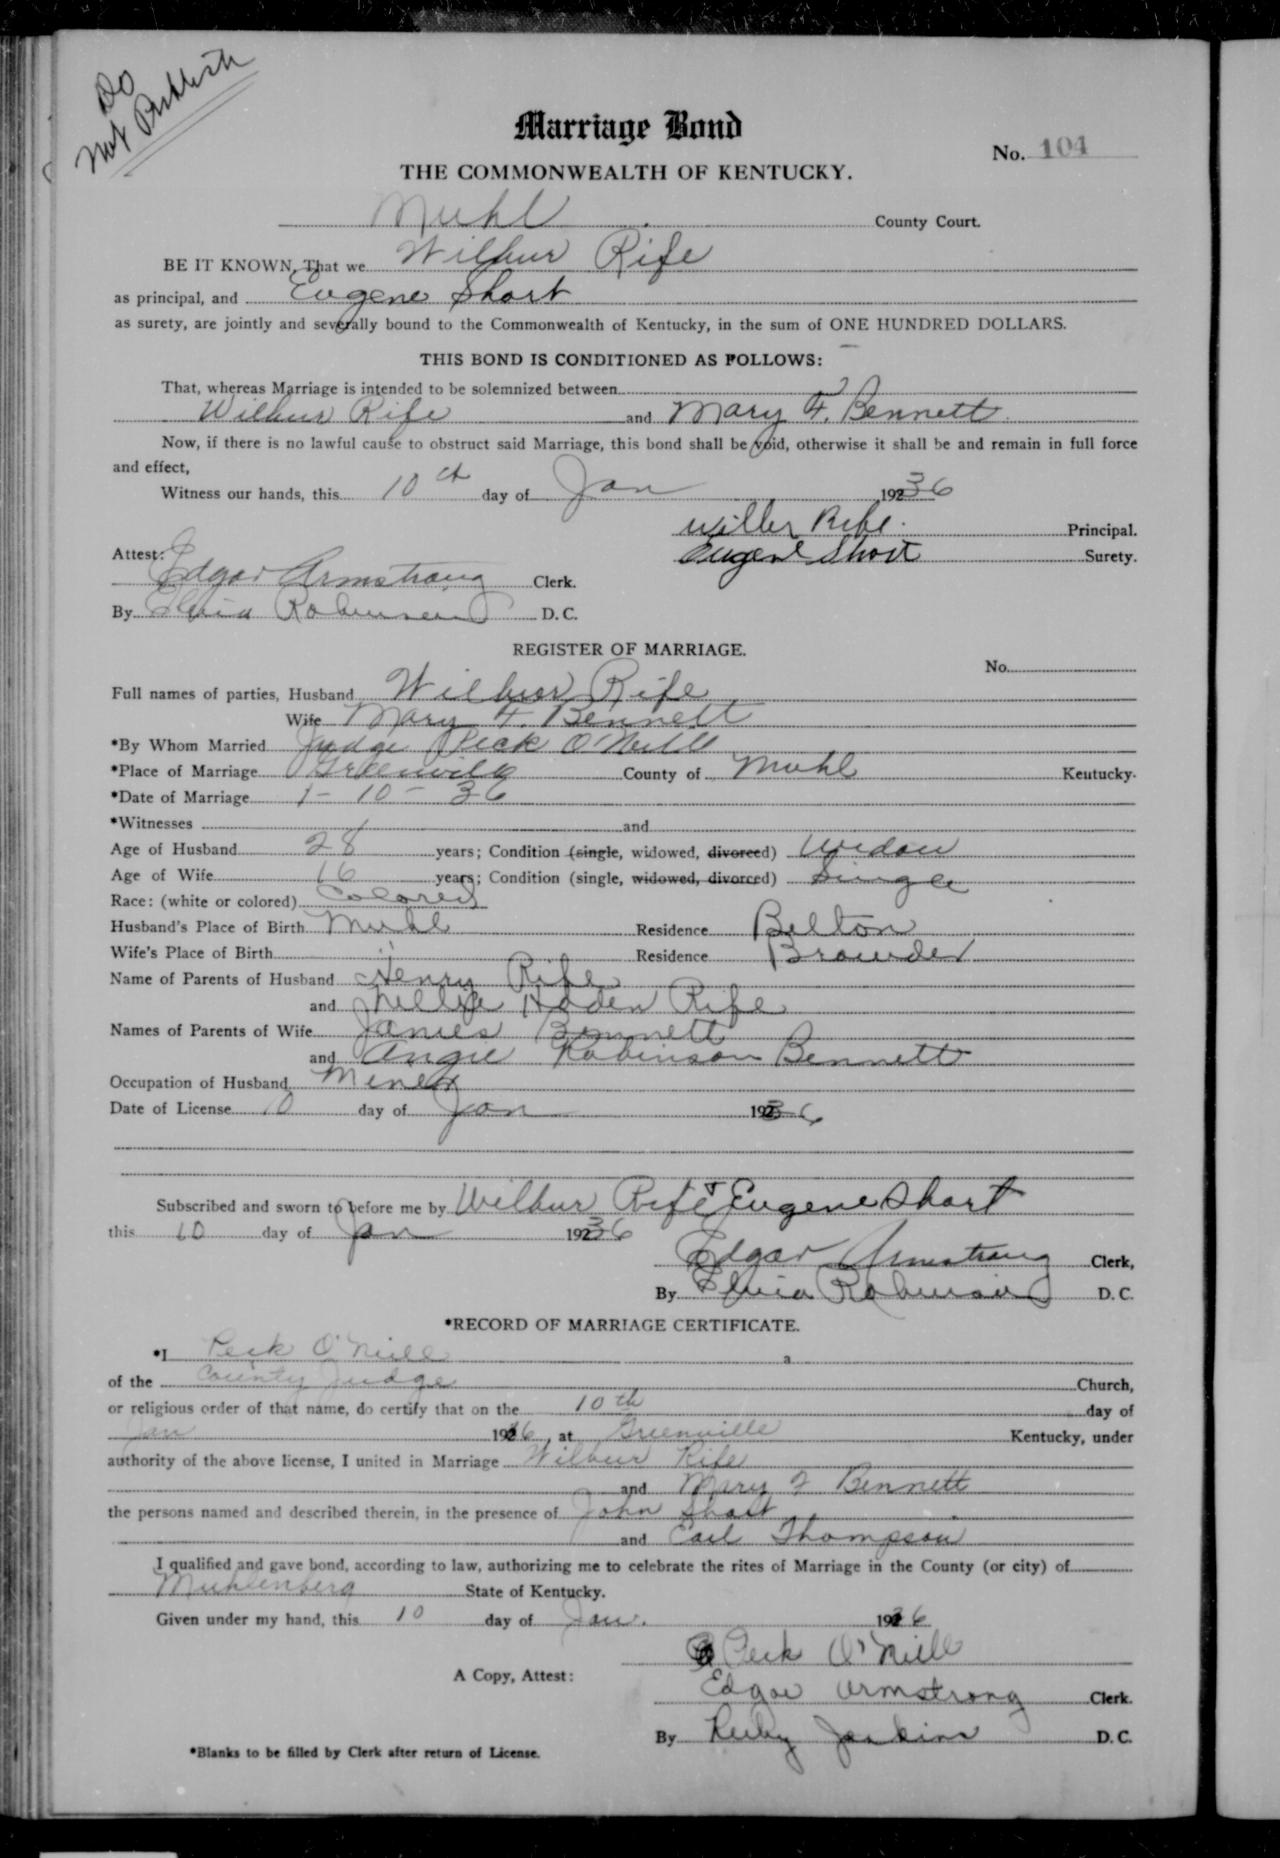 Do
Not Publish
Marriage Bond
No. 104
THE COMMONWEALTH OF KENTUCKY.
Muhl County Court.
BE IT KNOWN, That we Wilbur Rife
as principal, and Eugene Short
as surety, are jointly and severally bound to the Commonwealth of Kentucky, in the sum of ONE HUNDRED DOLLARS.
THIS BOND IS CONDITIONED AS FOLLOWS:
That, whereas Marriage is intended to be solemnized between
Wilbur Rife and Mary F. Bennett
Now, if there is no lawful cause to obstruct said Marriage, this bond shall be void, otherwise it shall be and remain in full force
and effect,
Witness our hands, this 10th day of Jan 1936
Wilber Rife. Principal.
Eugene Short Surety.
Attest:
Edgar Armstrong Clerk.
By Elvia Robinson D. C.
REGISTER OF MARRIAGE.
No.
Full names of parties, Husband Wilbur Rife
Wife Mary F. Bennett
*By Whom Married Judge Peck O'Neill
*Place of Marriage Greenville County of Muhl Kentucky.
*Date of Marriage 1-10-36
*Witnesses and
Age of Husband 28 years; Condition (single, widowed, divorced) Widow
Age of Wife 16 years; Condition (single, widowed, divorced) Single
Race: (white or colored) Colored
Husband's Place of Birth Muhl Residence Belton
Wife's Place of Birth " Residence Browder
Name of Parents of Husband Henry Rife
and Nellie Hoden Rife
Names of Parents of Wife James Bennett
and Angie Robinson Bennett
Occupation of Husband Miner
Date of License 10 day of Jan 1936
Subscribed and sworn to before me by Wilbur Rife & Eugene Short
this 10 day of Jan 1936
Edgar Armstrong Clerk,
By Elvia Robinson D. C.
*RECORD OF MARRIAGE CERTIFICATE.
*I Peck O'Neill a
of the County Judge Church,
or religious order of that name, do certify that on the 10th day of
Jan 1936, at Greenville Kentucky, under
authority of the above license, I united in Marriage Wilbur Rife
and Mary F Bennett
the persons named and described therein, in the presence of John Short
and Earl Thompson
I qualified and gave bond, according to law, authorizing me to celebrate the rites of Marriage in the County (or city) of
Muhlenberg State of Kentucky.
Given under my hand, this 10 day of Jan. 1936
Peck O'Neill
A Copy, Attest:
Edgar Armstrong Clerk.
By Ruby Jenkins D. C.
*Blanks to be filled by Clerk after return of License.